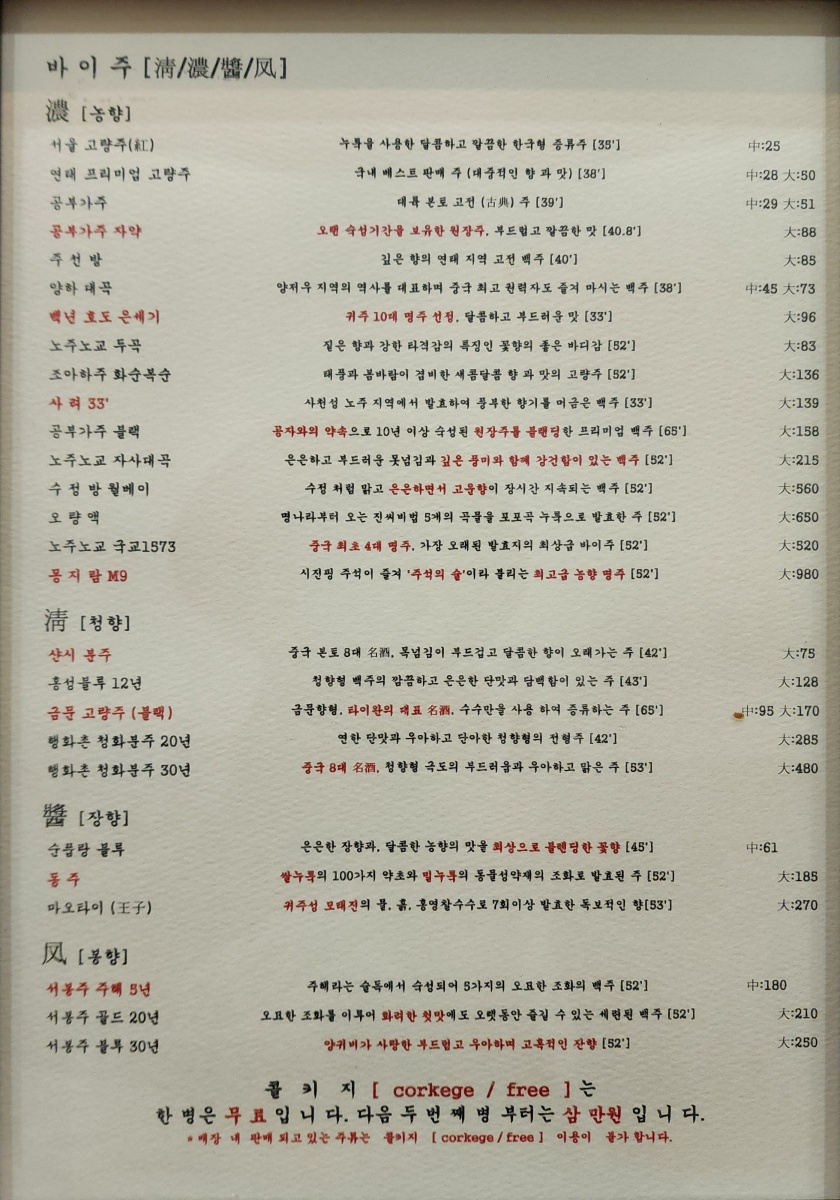 바 이 주 [淸/濃/醬/凤]
濃 [농향]
서울 고량주(紅) 누룩을 사용한 달콤하고 깔끔한 한국형 증류주 [35'] 中:25
연태 프리미엄 고량주 국내 베스트 판매 주 (대중적인 향 과 맛) [38'] 中:28 大:50
공부가주 대륙 본토 고전 (古典) 주 [39'] 中:29 大:51
공부가주 자약 오랜 숙성기간을 보유한 원장주, 부드럽고 깔끔한 맛 [40.8'] 大:88
주 선 방 깊은 향의 연태 지역 고전 백주 [40'] 大:85
양하 대곡 양저우 지역의 역사를 대표하며 중국 최고 권력자도 즐겨 마시는 백주 [38'] 中:45 大:73
백년 호도 은세기 귀주 10대 명주 선정, 달콤하고 부드러운 맛 [33'] 大:96
노주노교 두곡 짙은 향과 강한 타격감의 특징인 꽃향의 좋은 바디감 [52'] 大:83
조아하주 화순복순 태풍과 봄바람이 겸비한 새콤달콤 향 과 맛의 고량주 [52'] 大:136
사 려 33' 사천성 노주 지역에서 발효하여 풍부한 향기를 머금은 백주 [33'] 大:139
공부가주 블랙 공자와의 약속으로 10년 이상 숙성된 원장주를 블랜딩한 프리미엄 백주 [65'] 大:158
노주노교 자사대곡 은은하고 부드러운 목넘김과 깊은 풍미와 함께 강건함이 있는 백주 [52'] 大:215
수 정 방 월베이 수정 처럼 맑고 은은하면서 고운향이 장시간 지속되는 백주 [52'] 大:560
오 량 액 명나라부터 오는 진씨비법 5개의 곡물을 포포곡 누룩으로 발효한 주 [52'] 大:650
노주노교 국교1573 중국 최초 4대 명주, 가장 오래된 발효지의 최상급 바이주 [52'] 大:520
몽 지 람 M9 시진핑 주석이 즐겨 '주석의 술'이라 불리는 최고급 농향 명주 [52'] 大:980
淸 [청향]
샨시 분주 중국 본토 8대 名酒, 목넘김이 부드럽고 달콤한 향이 오래가는 주 [42'] 大:75
홍성블루 12년 청향형 백주의 깔끔하고 은은한 단맛과 담백함이 있는 주 [43'] 大:128
금문 고량주 (블랙) 금문향형, 타이완의 대표 名酒, 수수만을 사용 하여 증류하는 주 [65'] 中:95 大:170
행화촌 청화분주 20년 연한 단맛과 우아하고 단아한 청향형의 전형주 [42'] 大:285
행화촌 청화분주 30년 중국 8대 名酒, 청향형 극도의 부드러움과 우아하고 맑은 주 [53'] 大:480
醬 [장향]
순품랑 블루 은은한 장향과, 달콤한 농향의 맛을 최상으로 블랜딩한 꽃향 [45'] 中:61
동 주 쌀누룩의 100가지 약초와 밀누룩의 동물성약재의 조화로 발효된 주 [52'] 大:185
마오타이 (王子) 귀주성 모태진의 물, 흙, 홍영찰수수로 7회이상 발효한 독보적인 향[53'] 大:270
凤 [봉향]
서봉주 주해 5년 주해라는 술독에서 숙성되어 5가지의 오묘한 조화의 백주 [52'] 中:180
서봉주 골드 20년 오묘한 조화를 이루어 화려한 첫맛에도 오랫동안 즐길 수 있는 세련된 백주 [52'] 大:210
서봉주 블루 30년 양귀비가 사랑한 부드럽고 우아하며 고혹적인 잔향 [52'] 大:250
콜 키 지 [ corkege / free ] 는
한 병은 무 료 입 니 다. 다음 두 번 째 병 부터는 삼 만원 입 니 다.
* 매장 내 판매 되고 있는 주류는 콜키지 [ corkege / free ] 이용이 불가 합니다.